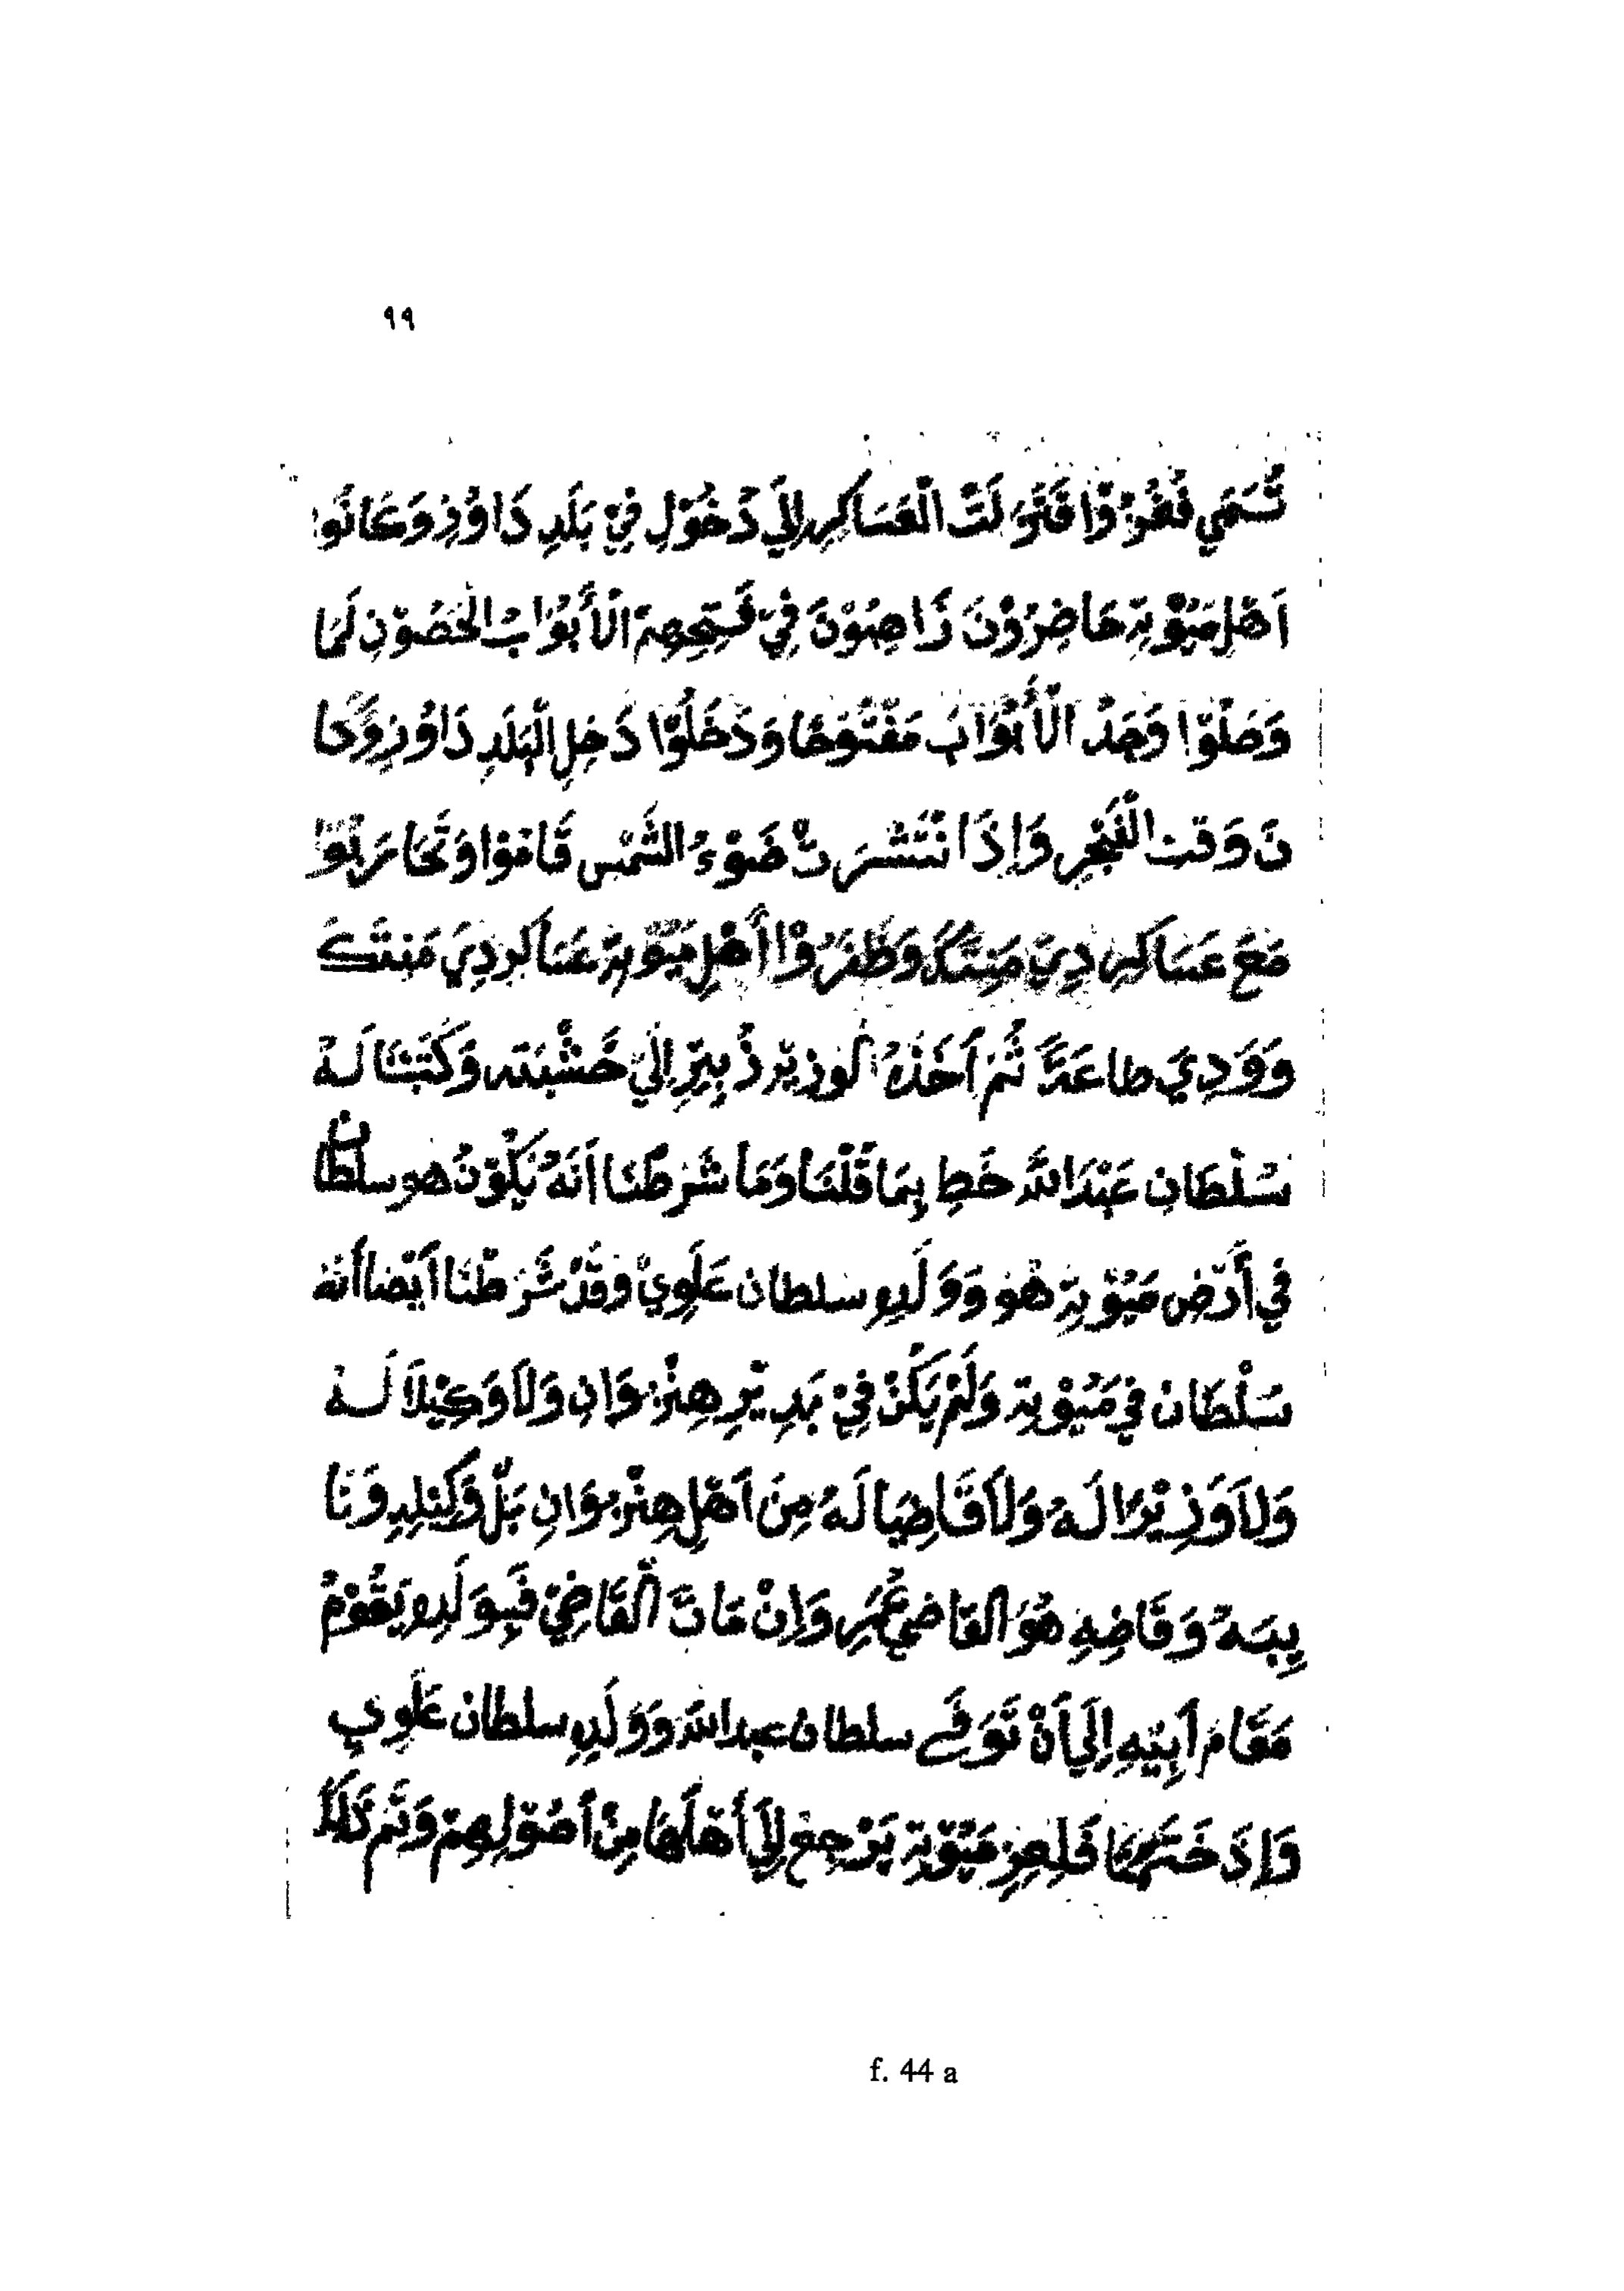 ٩٩
تُسَمَّي فُفُرُوْا فَتَرَ لَتْ الْعَسَاكِرِ إِلَي دُخُوْلِ فِيْ بَلَدِ دَاوُزِ وَكَانُوا
اَهْلِ مَيُوْتِة حَاضِرُوْنَ رَاضِوْنَ فِيْ فَتِحِهِمْ الْأَبْوَابُ الْحُصُوْنِ لَمَا
وَصَلُوْا وَجَدُ الْأَبْوَابَ مَفْتُوْحًا وَدَخَلُوْا دَخِلِ الْبَلَدِ دَاوُزِ وَكَا
نَ وَقت الْفَجِرِ وَإِذَا نْتَشَرَتْ ضَوْءُ الشَّمْسِ قَامُوا وَتَحَارَبُوْا
مَعَ عَسَاكِرِ دِيَ مَنِتَكَ وَظَفَرُوْا أَهْلِ مَيُوْتِة عَسَاكِرِ دِيَ مَنِتَكَ
وَوَدِيَ طاعَةً ثُمَّ اَخَذَهُ الوزيْر زُبِيَرِ إِلَيْ خَشْبَتَه وَكَتَبْنَا لَهُ
سُلْطَانِ عَبْدَاللَّه خَطِ بِمَا قُلْنَا وَمَا شَرَطْنَا اَنَّهُ يَكُوْنُ هو سلطان
في أَرْضِ مَيُوْتِة هُوَ وَوَلَدِهِ سلطان عَلَوِيْ وقَدْ شَرَطْنَا اَيْضا أَنَّهُ
سَلْطَان فِي مَيُوْتِة وَلَمْ يَكُنْ فِيْ يَدِ يْرِ هِنْزُوَانِ وَلَا وَكِيْلاً لَهُ
وَلاَ وَزِيْرًا لَهُ وَلاَ قَاضِيَا لَهُ مِنَ اَهْلِ هِنْزُوَانِ بَلْ وَكِيْلِهِ وَنَا
يِبَهُ وَقَاضِهِ هُوَ القَاضي عُمَرِ وَإِنْ مَاتَ الْقَاضِيْ فَبِوَلَدِهِ يَقُوْمُ
مَقَامَ اَبِيْهِ إِلَي أَنْ تَوَفَّے سلطان عبدالله وَوَلَدِهِ سلطان عَلَوِي
وَإِذَ خَتَرَمَا فَلِعِزِ مَيُوْتِة يَرْجِعْ إِلَي أَهْلَهَا مِنْ أَصُوْلِهِمْ وَتَم ذَلِكَ
f. 44 a